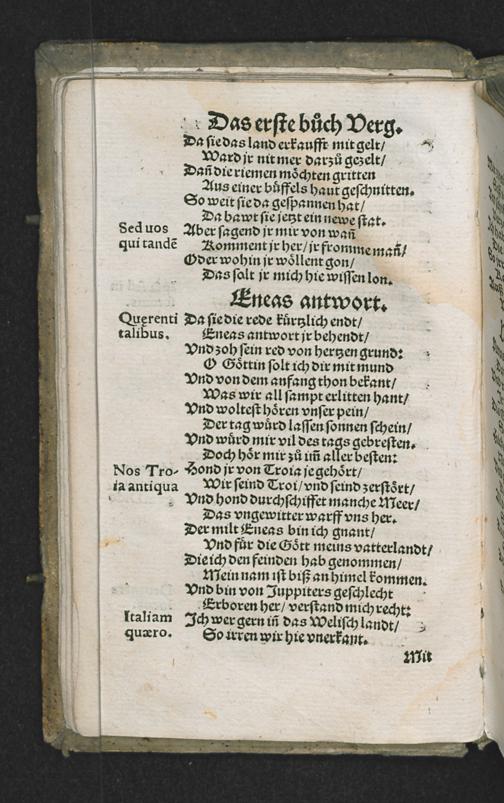 Das erste bůch Verg.
Da sie das land erkaufft mit gelt/
Ward jr nit mer darzů gezelt/
Dañ die riemen möchten gritten
Aus einer büffels haut geschnitten.
So weit sie da gespannen hat/
Da bawt sie jetzt ein newe stat.
Sed uos
Aber sagend jr mir von wañ
qui tandẽ
Komment jr her/ jr fromme mañ/
Oder wohin jr wöllent gon/
Das solt jr mich hie wissen lon.
Eneas antwort.
Quęrenti
Da sie die rede kürtzlich endt/
talibus.
Eneas antwort jr behendt/
Vnd zoh sein red von hertzen grund:
O Göttin solt ich dir mit mund
Vnd von dem anfang thon bekant/
Was wir all sampt erlitten hant/
Vnd woltest hören vnser pein/
Der tag würd lassen sonnen schein/
Vnd würd mir vil des tags gebresten.
Doch hör mir zů im̃ aller besten:
Nos Tro-
Hond jr von Troia je gehört/
ia antiqua
Wir seind Troi/ vnd seind zerstört/
Vnd hond durchschiffet manche Meer/
Das vngewitter warff vns her.
Der milt Eneas bin ich gnant/
Vnd für die Gött meins vatterlandt/
Die ich den feinden hab genommen/
Mein nam ist biß an himel kommen.
Vnd bin von Juppiters geschlecht
Erboren her/ verstand mich recht:
Italiam
Ich wer gern iñ das Welisch landt/
quæro.
So irren wir hie vnerkant.
Mit